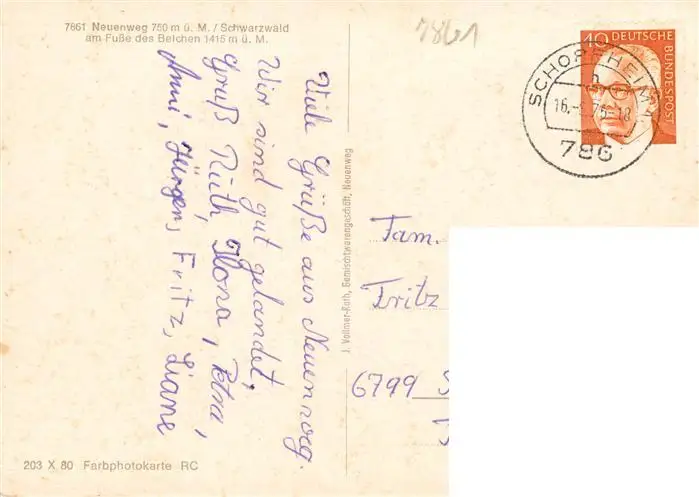 7861 Neuenweg 750 m ü. M. / Schwarzwald
am Fuße des Belchen 1415 m ü. M.
7861
Viele Grüße aus Neuenweg.
Wir sind gut gelandet,
Gruß Ruth, Ilona, Petra,
Anni, Jürgen, Fritz, Liane
J. Vollmer-Kuth, Gemischtwarengeschäft, Neuenweg
40 DEUTSCHE
BUNDESPOST
SCHOPFHEIM 1
h
16. 75-18
786
Fam.
Fritz
6799 S
203 X 80 Farbphotokarte RC